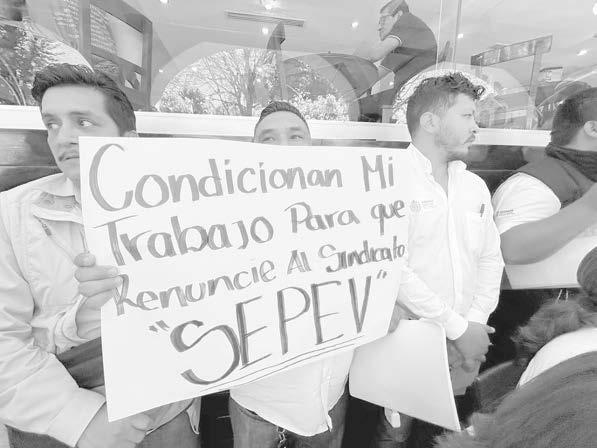 Condicionan Mi
Trabajo Para que
Renuncie Al Sindicato
"SEPEV"